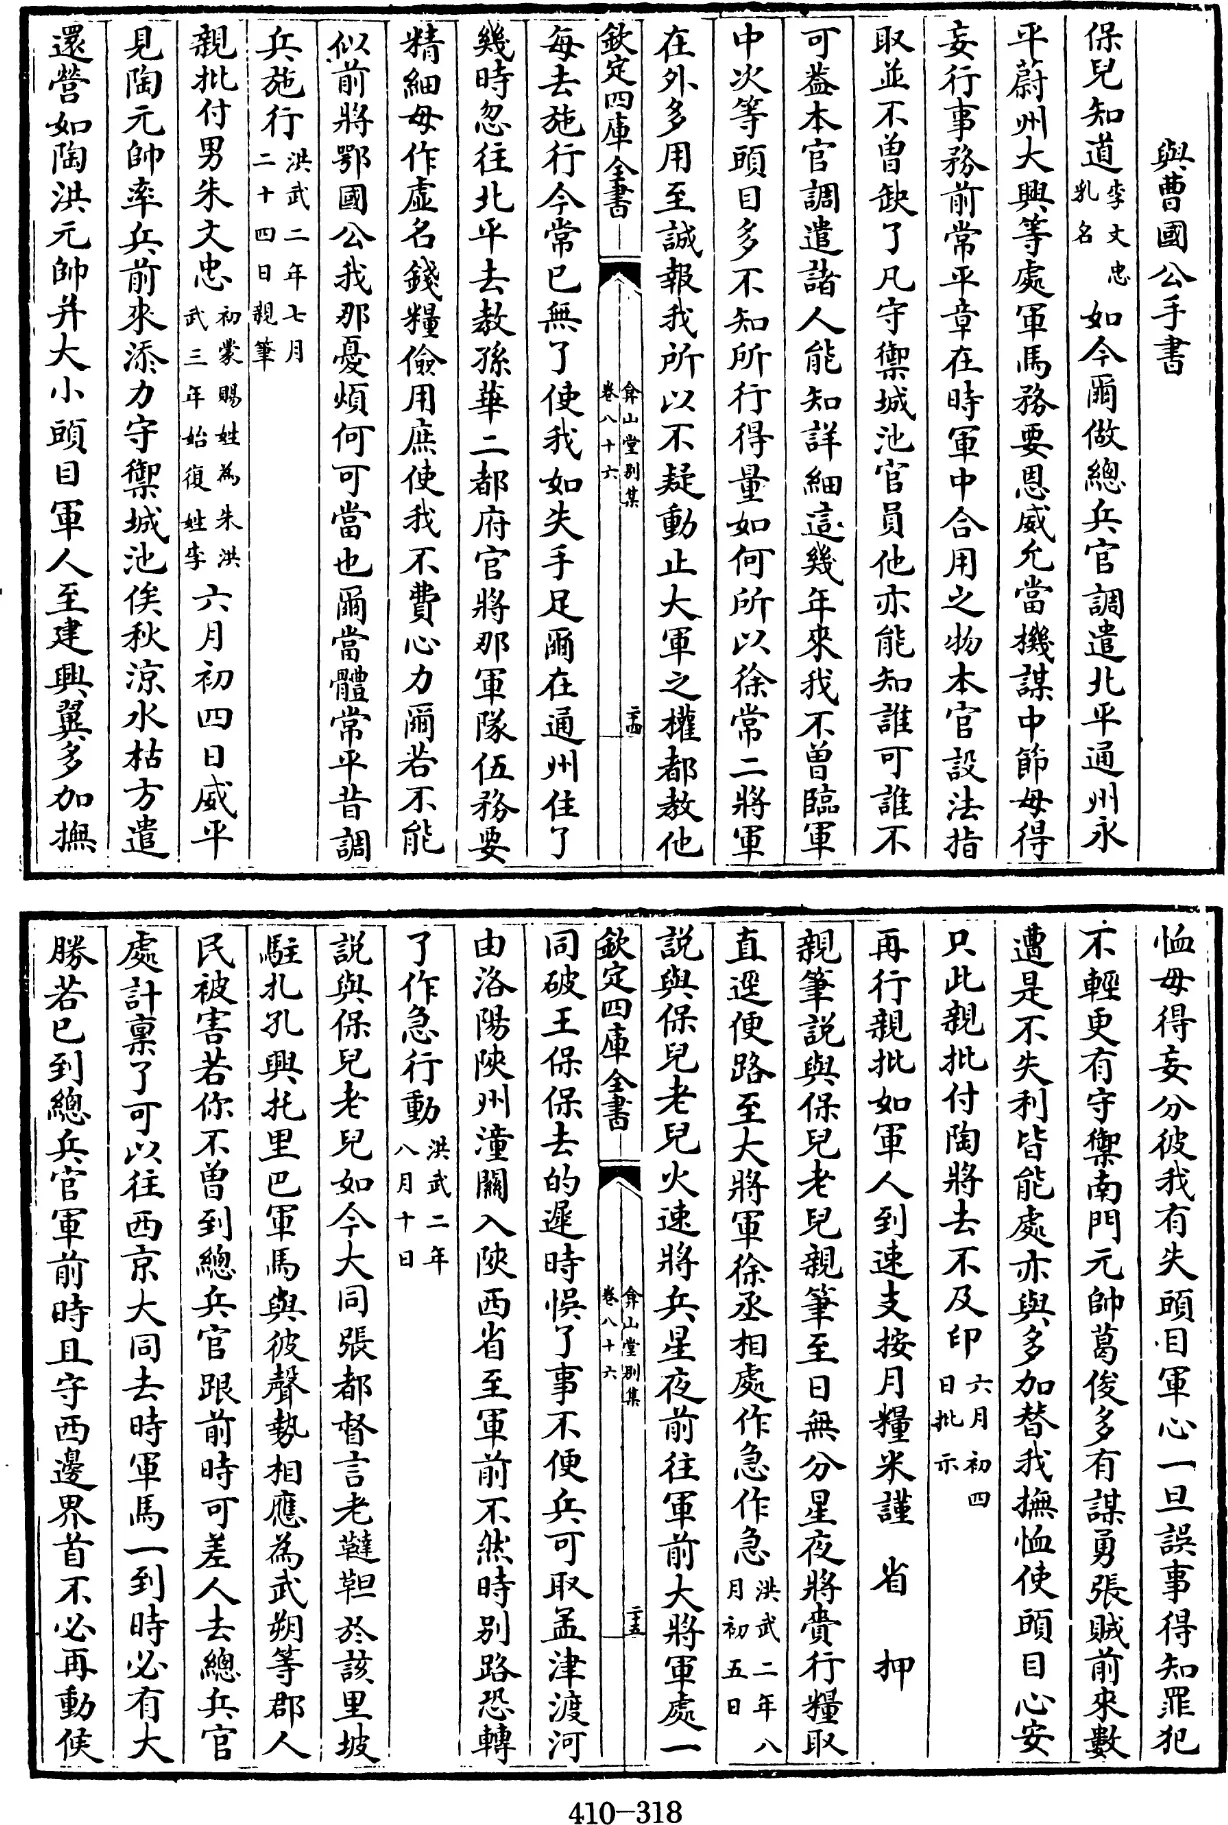 與曹國公手書
保兒知道李文忠乳名如今爾做總兵官調遣北平通州永
平蔚州大興等處軍馬務要恩威允當機謀中節毋得
妄行事務前常平章在時軍中合用之物本官設法指
取並不曾缺了凡守禦城池官員他亦能知誰可誰不
可葢本官調遣諸人能知詳細這幾年來我不曾臨軍
中次等頭目多不知所行得量如何所以徐常二將軍
在外多用至誠報我所以不疑動止大軍之權都教他
欽定四庫全書
弇山堂别集
卷八十六
二十四
每去施行今常已無了使我如失手足爾在通州住了
幾時忽往北平去教孫華二都府官將那軍隊伍務要
精細毋作虛名錢糧儉用庶使我不費心力爾若不能
似前將鄂國公我那憂煩何可當也爾當體常平昔調
兵施行洪武二年七月二十四日親筆
親批付男朱文忠初蒙賜姓為朱洪武三年始復姓李六月初四日威平
見陶元帥率兵前來添力守禦城池俟秋涼水枯方遣
還營如陶洪元帥并大小頭目軍人至建興翼多加撫
恤毋得妄分彼我有失頭目軍心一旦誤事得知罪犯
不輕更有守禦南門元帥葛俊多有謀勇張賊前來數
遭是不失利皆能處亦與多加替我撫恤使頭目心安
只此親批付陶將去不及印六月初四日批示
再行親批如軍人到速支按月糧米謹 省 押
親筆說與保兒老兒親筆至日無分星夜將賫行糧取
直逕便路至大將軍徐丞相處作急作急洪武二年八月初五日
說與保兒老兒火速將兵星夜前往軍前大將軍處一
欽定四庫全書
弇山堂别集
卷八十六
二十五
同破王保保去的遲時悞了事不便兵可取孟津渡河
由洛陽陜州潼關入陜西省至軍前不然時别路恐轉
了作急行動洪武二年八月十日
說與保兒老兒如今大同張都督言老韃靼於該里坡
駐扎孔興托里巴軍馬與彼聲勢相應為武朔等郡人
民被害若你不曾到總兵官跟前時可差人去總兵官
處計稟了可以往西京大同去時軍馬一到時必有大
勝若已到總兵官軍前時且守西邊界首不必再動候
410-318